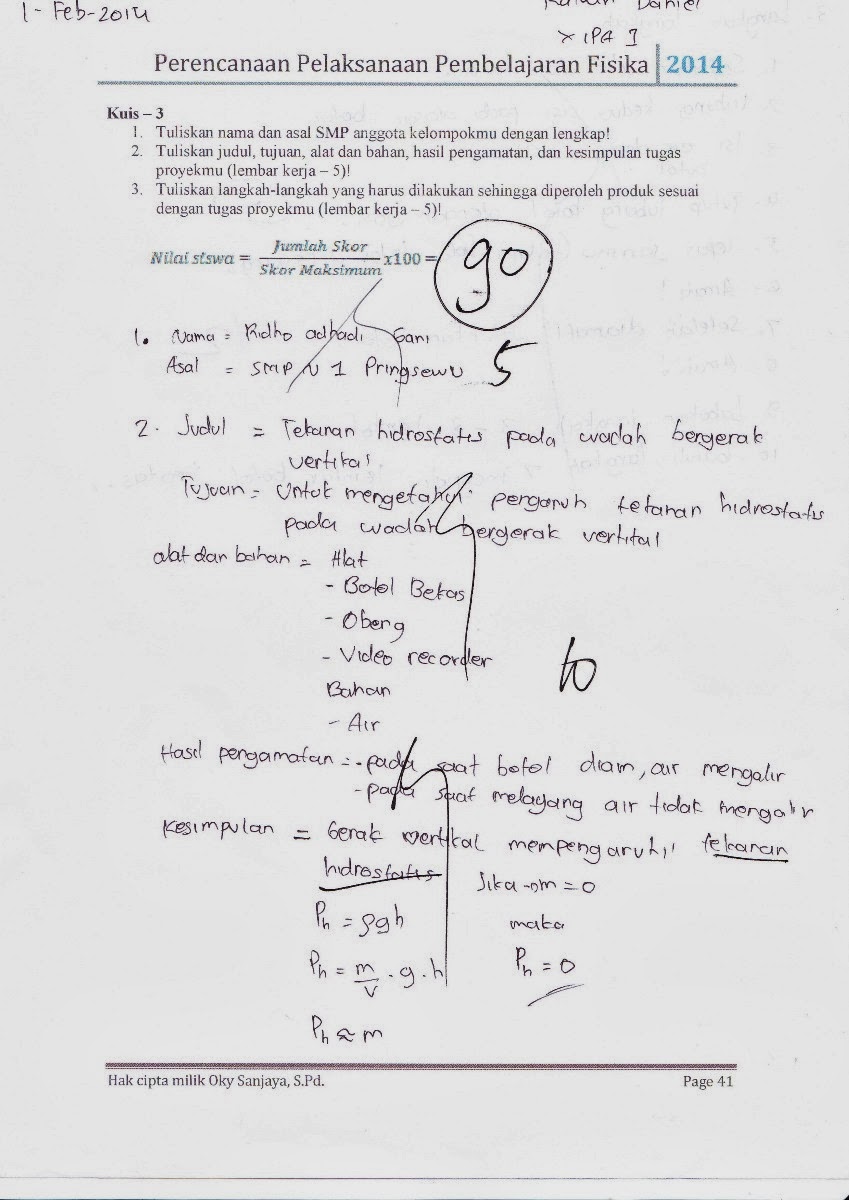 1 - Feb-2014
Daniel
X IPA 1
Perencanaan Pelaksanaan Pembelajaran Fisika 2014
Kuis – 3
1. Tuliskan nama dan asal SMP anggota kelompokmu dengan lengkap!
2. Tuliskan judul, tujuan, alat dan bahan, hasil pengamatan, dan kesimpulan tugas
proyekmu (lembar kerja – 5)!
3. Tuliskan langkah-langkah yang harus dilakukan sehingga diperoleh produk sesuai
dengan tugas proyekmu (lembar kerja – 5)!
Nilai siswa = Jumlah Skor / Skor Maksimum x100 = 90
1. Nama = Ridho adhadi Gani
Asal = SMP N 1 Pringsewu 5
2. Judul = Tekanan hidrostatis pada wadah bergerak
vertikal
Tujuan = Untuk mengetahui pengaruh tekanan hidrostatis
pada wadah bergerak vertikal
alat dan bahan = Alat
- Botol Bekas
- Obeng
- Video recorder
10
Bahan
- Air
Hasil pengamatan = - pada saat botol diam, air mengalir
- pada saat melayang air tidak mengalir
Kesimpulan = Gerak vertikal mempengaruhi tekanan
hidrostatis
Jika m = 0
Ph = ρgh maka
Ph = m/v . g . h Ph = 0
Ph ≈ m
Hak cipta milik Oky Sanjaya, S.Pd. Page 41